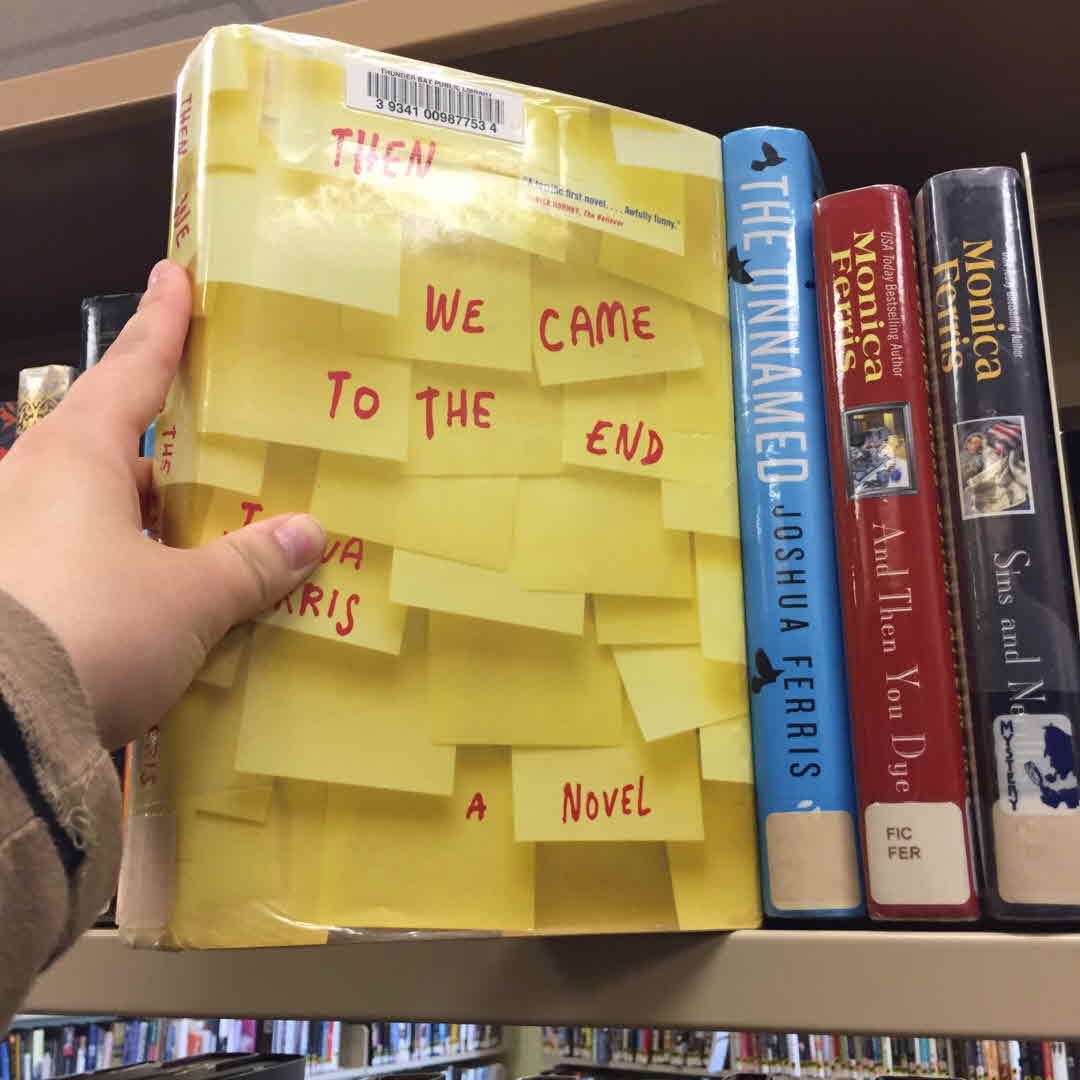 THUNDER BAY PUBLIC LIBRARY
3 9341 00987753 4
THEN
"A terrific first novel.... Awfully funny."
NICK HORNBY, The Believer
WE CAME
TO THE END
A NOVEL
THEN WE
THE
THE UNNAMED JOSHUA FERRIS
USA Today Bestselling Author
Monica
Ferris
And Then You Dye
FIC
FER
USA Today Bestselling Author
Monica
Ferris
Sins and
MYSTERY